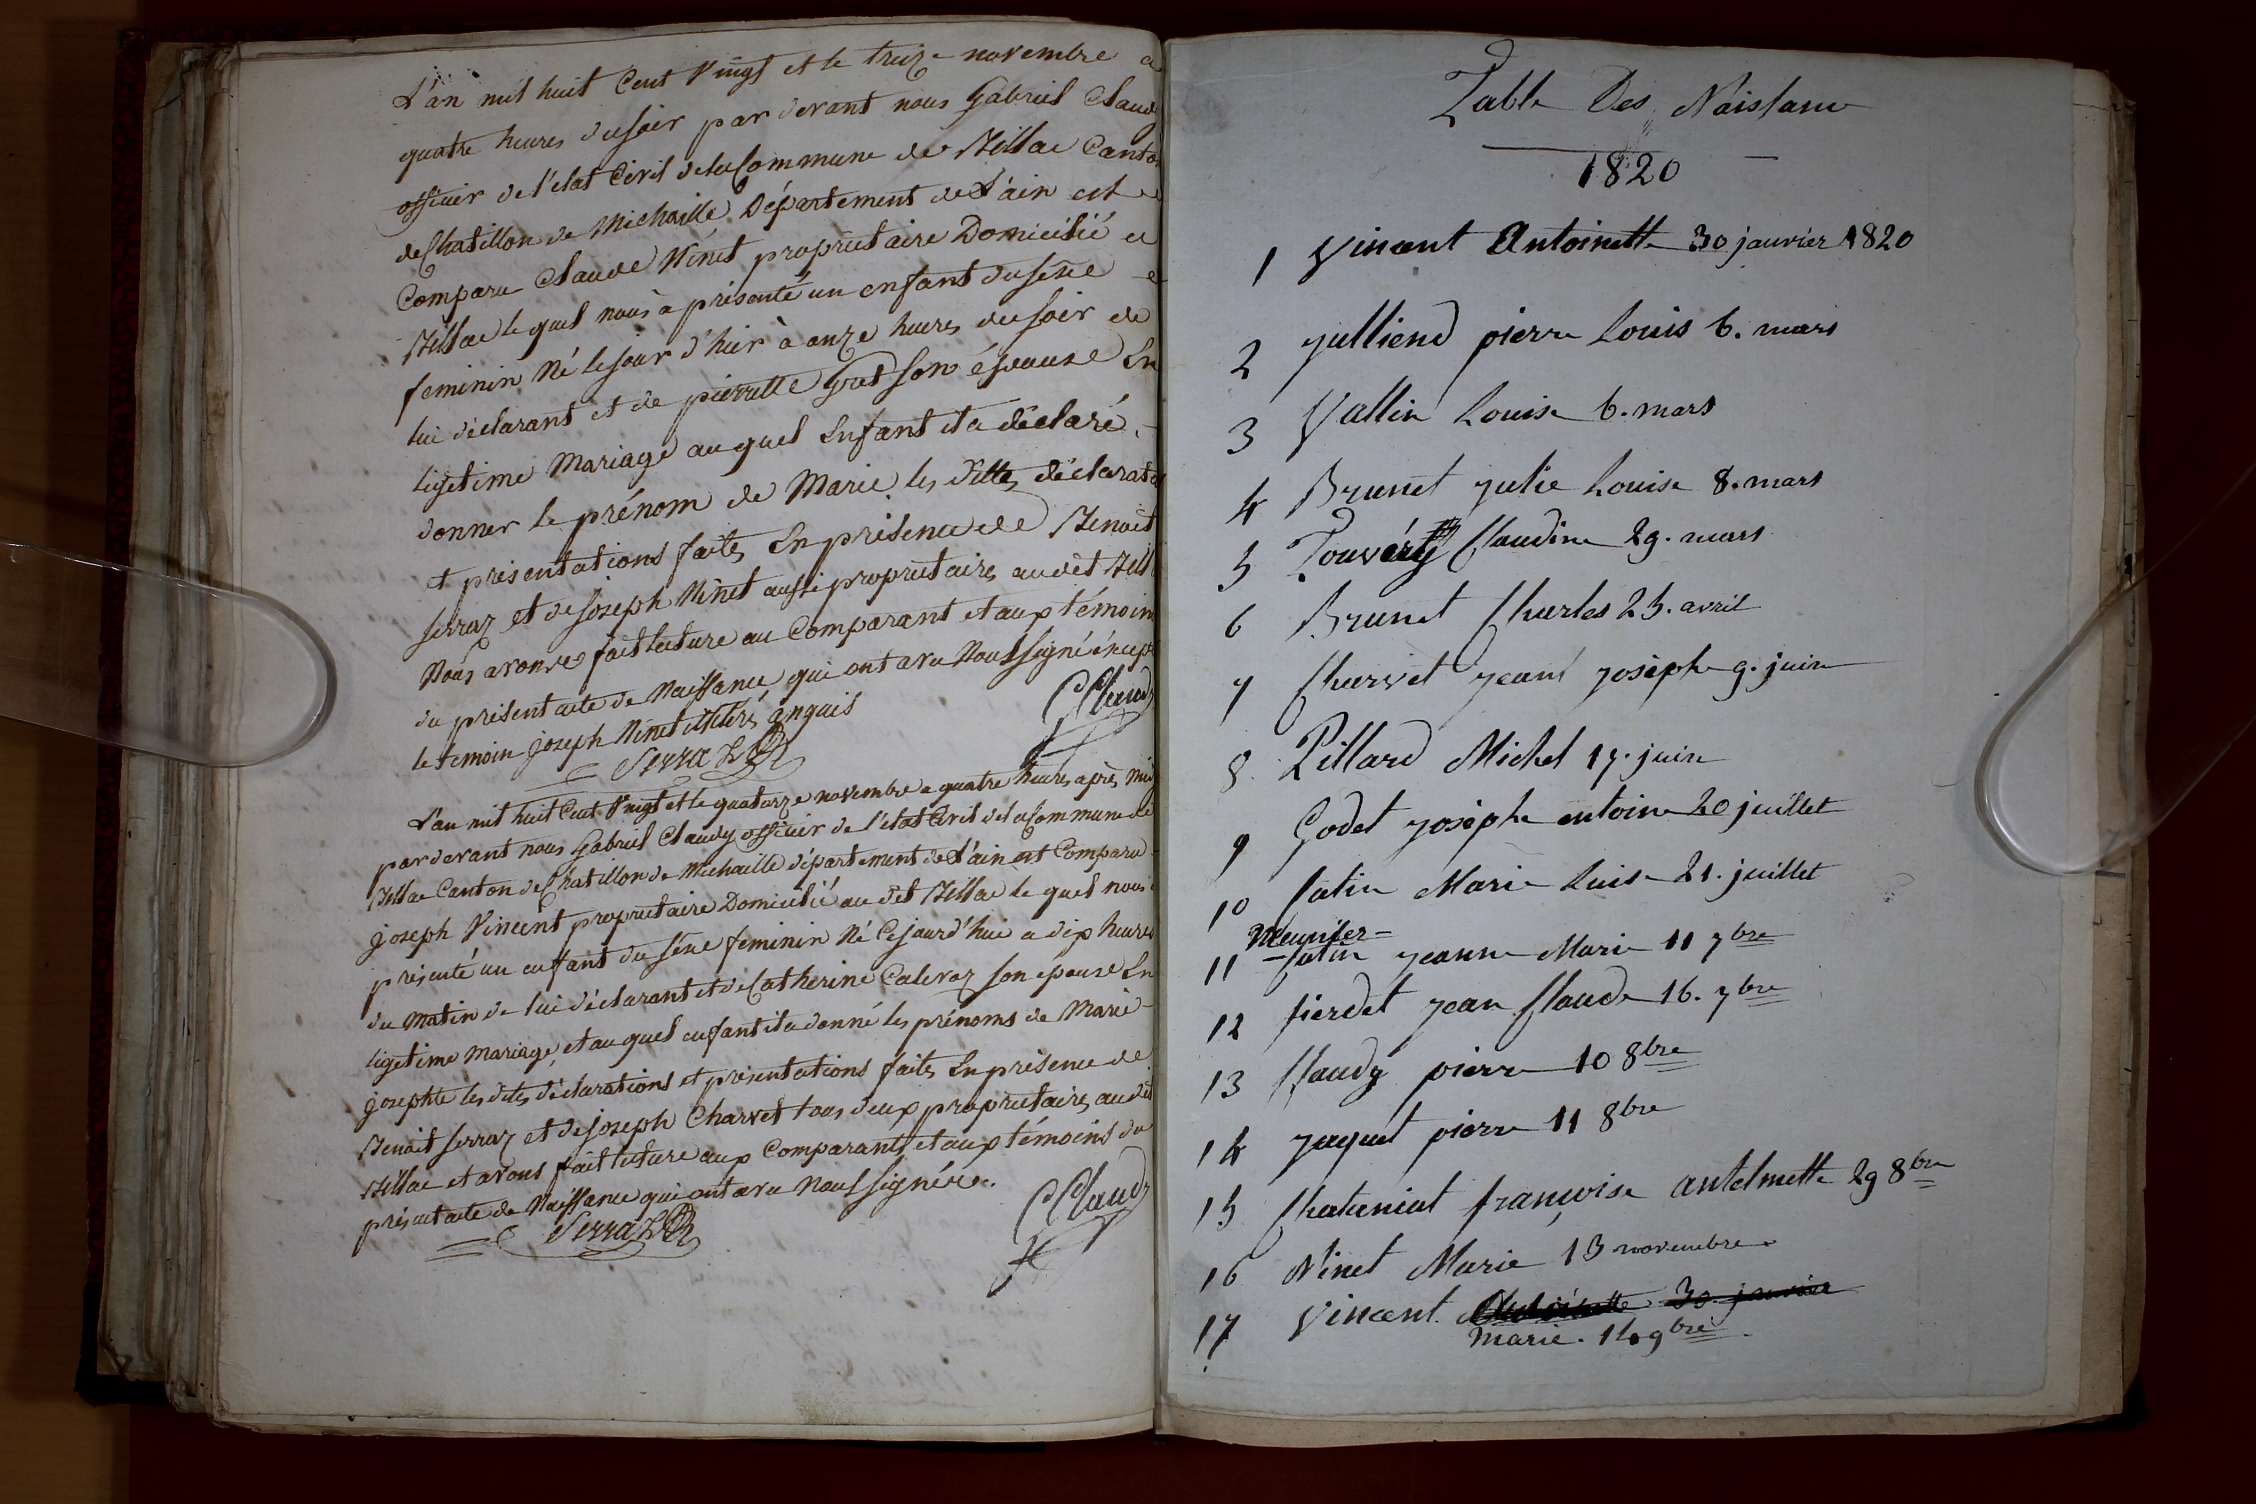 L'an mil huit Cent Vingt et le treize novembre a
quatre heures du soir par devant nous Gabriel Claudy
officier de l'etat Civil de la Commune de Billac Canton
de Chatillon de Michaille Département de L'ain est
Comparu Claude Ninet proprietaire Domicilié a
Billac le quel nous à présenté un enfant du sexe
feminin Né le jour d'hier à onze heures du soir de
lui déclarant et de pierrette son épouse En
ligetime Mariage au quel Enfant il a déclaré
donner le prénom de Marie les dittes déclarat
et présentations faites En présence de Benoit
Serraz et de Joseph Ninet aussi propriétaires au dit Bill
Nous avons fait lecture au Comparant et aux témoins
du présent acte de Naissance qui ont avec Nous Signé éxcepté
le temoin joseph Ninet illiteré enquis
Serraz B
GClaudy
L'an mil huit Cent Vingt et le quatorze novembre a quatre heures après midy
par devant nous Gabriel Claudy officier de l'etat Civil de la Commune de
Billac Canton de Chatillon de Michaille département de L'ain est Comparu
joseph Vincent propriétaire Domicilié au dit Billac le quel nous
présenté un enfant du séxe feminin Né Cejourd'hui a dix heures
du Matin de lui déclarant et de Catherine son épouse En
ligetime Mariage, et au quel enfant il a donné les prénoms de Marie
josephte les dites déclarations et présentations faites En présence de
Benoit Serraz et de joseph Charvet tous deux propriétaires au dit
Billac et avons fait lecture aux Comparants et aux témoins du
présent acte de Naissance qui ont avec Nous Signé
Serraz B
GClaudy
Table Des Naissance
1820
1 Vincent Antoinette 30 janvier 1820
2 julliend pierre Louis 6. mars
3 Vallin Louise 6. mars
4 Brunet julie Louise 8. mars
5 Touvéry Claudine 29. mars
6 Brunet Charles 25. avril
7 Charvet jean joseph 9. juin
8 Pillard Michel 17. juin
9 Godet joseph antoine 20 juillet
10 Catin Marie Luise 21. juillet
Meunier
11 Catin jeanne Marie 11 7bre
12 fierdet jean Claude 16. 7bre
13 Claudy pierre 10 8bre
14 jaquet pierre 11 8bre
15 Chataniat françoise antelmette 29 8bre
16 Ninet Marie 13 novembre
17 Vincent Antoinette 30 janvier
Marie. 14 9bre